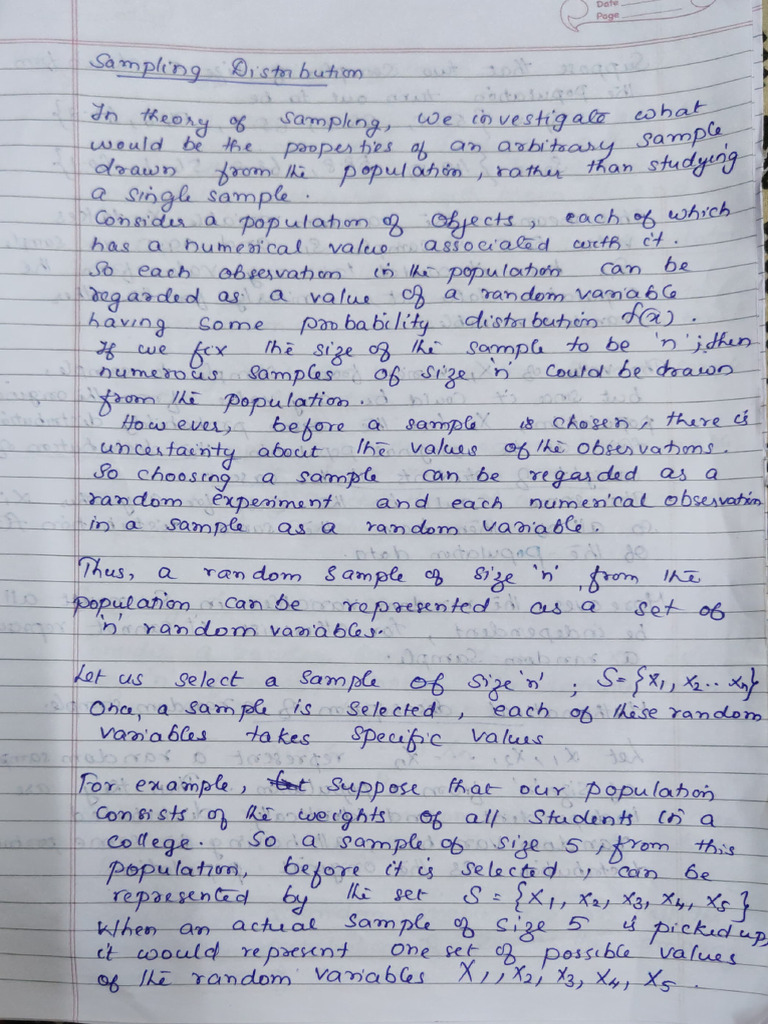 Date
Page
Sampling Distribution
In theory of sampling, we investigate what
would be the properties of an arbitrary sample
drawn from the population, rather than studying
a single sample.
Consider a population of objects, each of which
has a numerical value associated with it.
So each observation in the population can be
regarded as a value of a random variable
having some probability distribution f(x).
If we fix the size of the sample to be 'n', then
numerous samples of size 'n' could be drawn
from the population.
However, before a sample is chosen, there is
uncertainty about the values of the observations.
So choosing a sample can be regarded as a
random experiment and each numerical observation
in a sample as a random variable.
Thus, a random sample of size 'n' from the
population can be represented as a set of
'n' random variables.
Let us select a sample of size 'n'; S={x₁, x₂.. xₙ}
Once, a sample is selected, each of these random
variables takes specific values
For example, suppose that our population
consists of the weights of all students in a
college. So a sample of size 5, from this
population, before it is selected, can be
represented by the set S = {X₁, X₂, X₃, X₄, X₅}
When an actual sample of size 5 is picked up,
it would represent one set of possible values
of the random variables X₁, X₂, X₃, X₄, X₅.